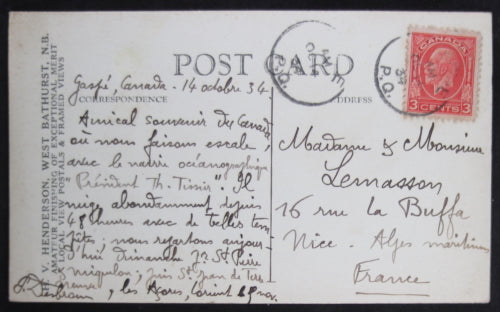 POST CARD
Gaspé, Canada - 14 octobre 34
CORRESPONDENCE
Amical souvenir du Canada
où nous faisons escale,
avec le navire océanographique
"Président Th. Tissier". Il
neige abondamment depuis
48 heures avec de belles tem
pêtes; nous repartons aujour-
d'hui dimanche pr St Pierre
Miquelon; puis St Jean de Terre
Neuve, les Açores, Lorient nov.
H. V. HENDERSON, WEST BATHURST, N.B.
AMATEUR FINISHING OF EXCEPTIONAL MERIT
LOCAL VIEW POSTALS & FRAMED VIEWS
ADDRESS
P.Q.
P.Q.
CANADA
3 CENTS 3
Madame & Monsieur
Lemasson
16 rue la Buffa
Nice - Alpes maritimes
France